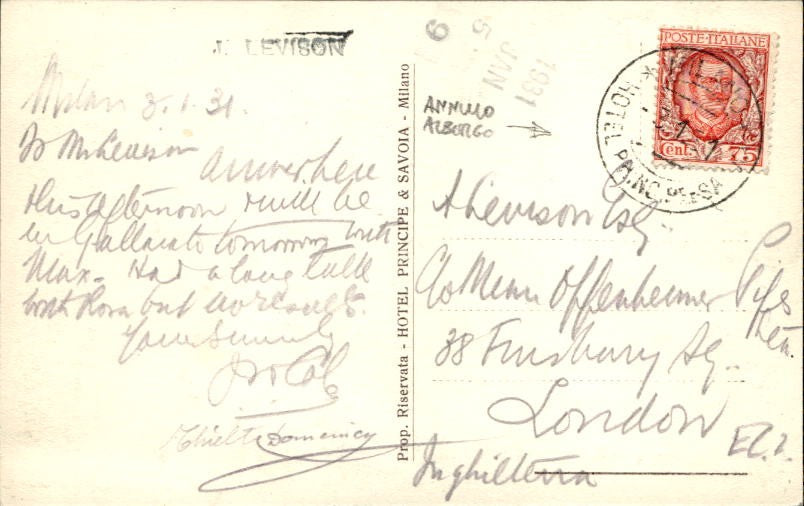 J. LEVISON
Milan 3.1.31
Dr Mr Levison
arriver here
this afternoon & will be
in Gallarate tomorrow with
Max. Had a long talk
with but no result.
Yours Sincerely
Domenico
Prop. Riservata - HOTEL PRINCIPE & SAVOIA - Milano
1931
JAN
5
9
ANNULLO
ALBERGO
POSTE·ITALIANE
Cent. 75
MILANO
HOTEL PRINCIPESSA
A Levison Esq
C/o Messrs Offenheimer
38 Finsbury Sq.
London
E.C.2.
Inghilterra